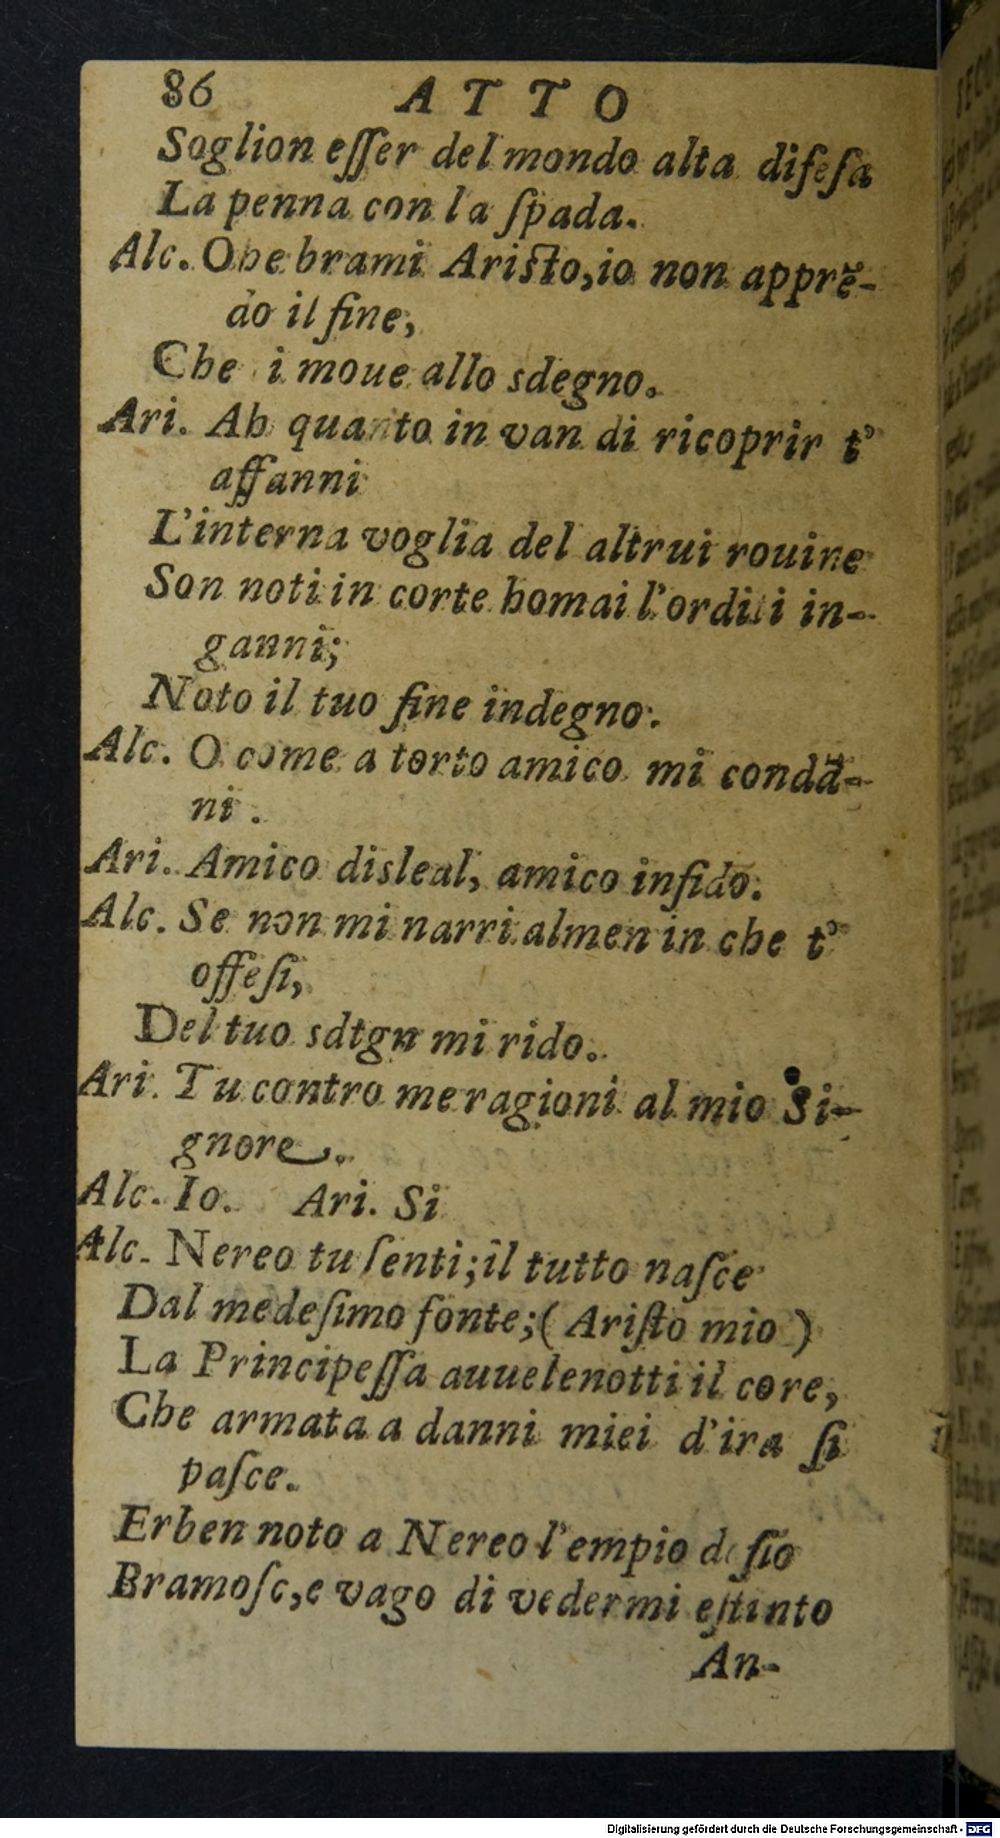 86 ATTO
Soglion eſſer del mondo alta difeſa
La penna con la ſpada.
Alc. Ohe brami Ariſto, io non apprẽ-
do il fine,
Che i moue allo sdegno.
Ari. Ah quanto in van di ricoprir t'
affanni
L'interna voglia del altrui rouine
Son noti in corte homai l'orditi in-
ganni;
Noto il tuo fine indegno.
Alc. O come a torto amico mi condã-
ni.
Ari. Amico disleal, amico infido.
Alc. Se non mi narri almen in che t'
offeſi,
Del tuo sdtgn mi rido.
Ari. Tu contro me ragioni al mio Si-
gnore.
Alc. Io. Ari. Si
Alc. Nereo tu ſenti; il tutto naſce
Dal medeſimo fonte; (Ariſto mio)
La Principeſſa auuelenotti il core,
Che armata a danni miei d'ira ſi
paſce.
Erben noto a Nereo l'empio deſio
Bramoſc, e vago di vedermi eſtinto
An-
Digitalisierung gefördert durch die Deutsche Forschungsgemeinschaft - DFG